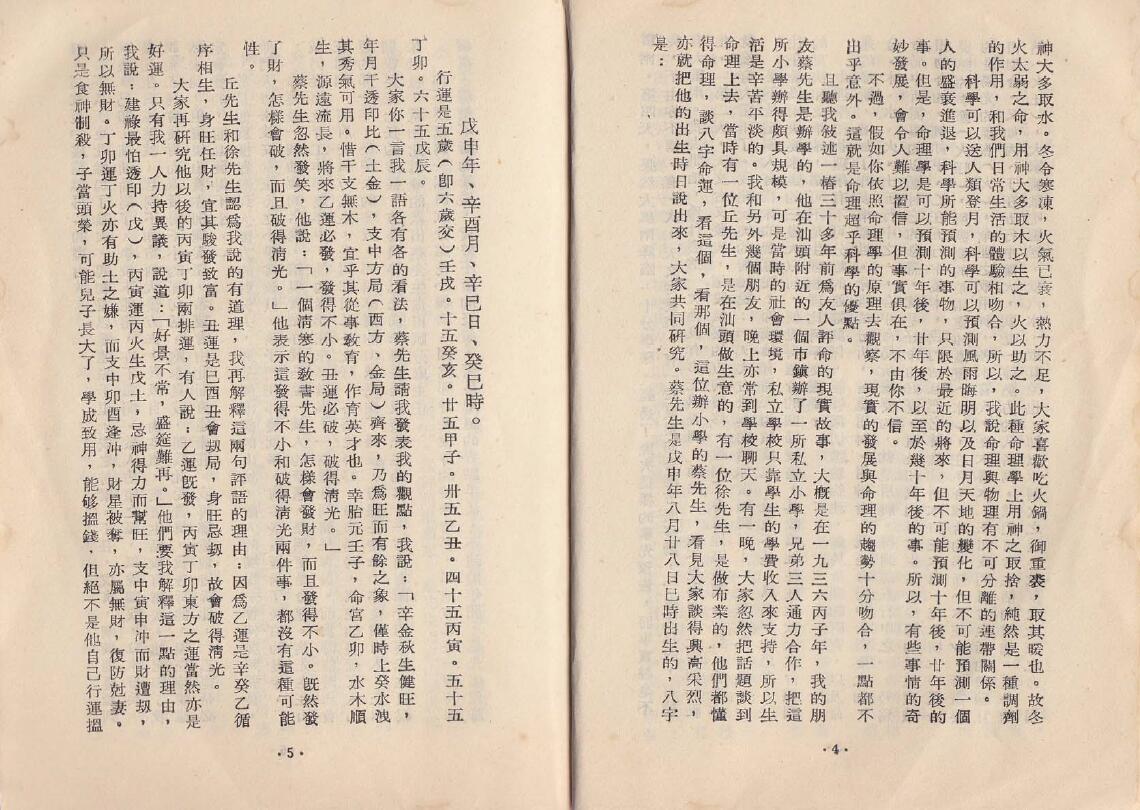 神大多取水。冬令寒凍，火氣已衰，熱力不足，大家喜歡吃火鍋，御重裘，取其暖也。故冬
火太弱之命，用神大多取木以生之，火以助之。此種命理學上用神之取捨，純然是一種調劑
的作用，和我們日常生活的體驗相吻合，所以，我說命理與物理有不可分離的連帶關係。
科學可以送人類登月，科學可以預測風雨晦明以及日月天地的變化，但不可能預測一個
人的盛衰進退，科學所能預測的事物，只限於最近的將來，但不可能預測十年後，廿年後的
事。但是，命理學是可以預測十年後，廿年後，以至於幾十年後的事。所以，有些事情的奇
妙發展，會令人難以置信，但事實俱在，不由你不信。
不過，假如你依照命理學的原理去觀察，現實的發展與命理的趨勢十分吻合，一點都不
出乎意外。這就是命理超乎科學的優點。
且聽我敍述一樁三十多年前為友人評命的現實故事，大概是在一九三六丙子年，我的朋
友蔡先生是辦學的，他在汕頭附近的一個市鎮辦了一所私立小學，兄弟三人通力合作，把這
所小學辦得頗具規模，可是當時的社會環境，私立學校只靠學生的學費收入來支持，所以生
活是辛苦平淡的。我和另外幾個朋友，晚上亦常到學校聊天。有一晚，大家忽然把話題談到
命理上去，當時有一位丘先生，是在汕頭做生意的，有一位徐先生，是做布業的，他們都懂
得命理，談八字命運，看這個，看那個，這位辦小學的蔡先生，看見大家談得興高采烈，
亦就把他的出生時日說出來，大家共同研究。蔡先生是戊申年八月廿八日巳時出生的，八字
是：
·4·
戊申年、辛酉月、辛巳日、癸巳時。
行運是五歲（卽六歲交）壬戌。十五癸亥。廿五甲子。卅五乙丑。四十五丙寅。五十五
丁卯。六十五戊辰。
大家你一言我一語各有各的看法，蔡先生請我發表我的觀點，我說：「辛金秋生健旺，
年月干透印比（土金），支中方局（西方、金局）齊來，乃爲旺而有餘之象，僅時上癸水洩
其秀氣可用。惜干支無木，宜乎其從事敎育，作育英才也。幸胎元壬子，命宮乙卯，水木順
生，源遠流長，將來乙運必發，發得不小。丑運必破，破得淸光。」
蔡先生忽然發笑，他說：「一個淸寒的敎書先生，怎樣會發財，而且發得不小。旣然發
了財，怎樣會破，而且破得淸光。」他表示這發得不小和破得淸光兩件事，都沒有這種可能
性。
丘先生和徐先生認爲我說的有道理，我再解釋這兩句評語的理由：因爲乙運是辛癸乙循
序相生，身旺任財，宜其駿發致富。丑運是巳酉丑會刼局，身旺忌刼，故會破得淸光。
大家再研究他以後的丙寅丁卯兩排運，有人說：乙運旣發，丙寅丁卯東方之運當然亦是
好運。只有我一人力持異議，說道：「好景不常，盛筵難再。」他們要我解釋這一點的理由，
我說：建祿最怕透印（戊），丙寅運丙火生戊土，忌神得力而幫旺，支中寅申沖而財遭刼，
所以無財。丁卯運丁火亦有助土之嫌，而支中卯酉逢沖，財星被奪，亦屬無財，復防尅妻。
只是食神制殺，子當頭榮，可能兒子長大了，學成致用，能够搵錢，但絕不是他自己行運搵
·5·